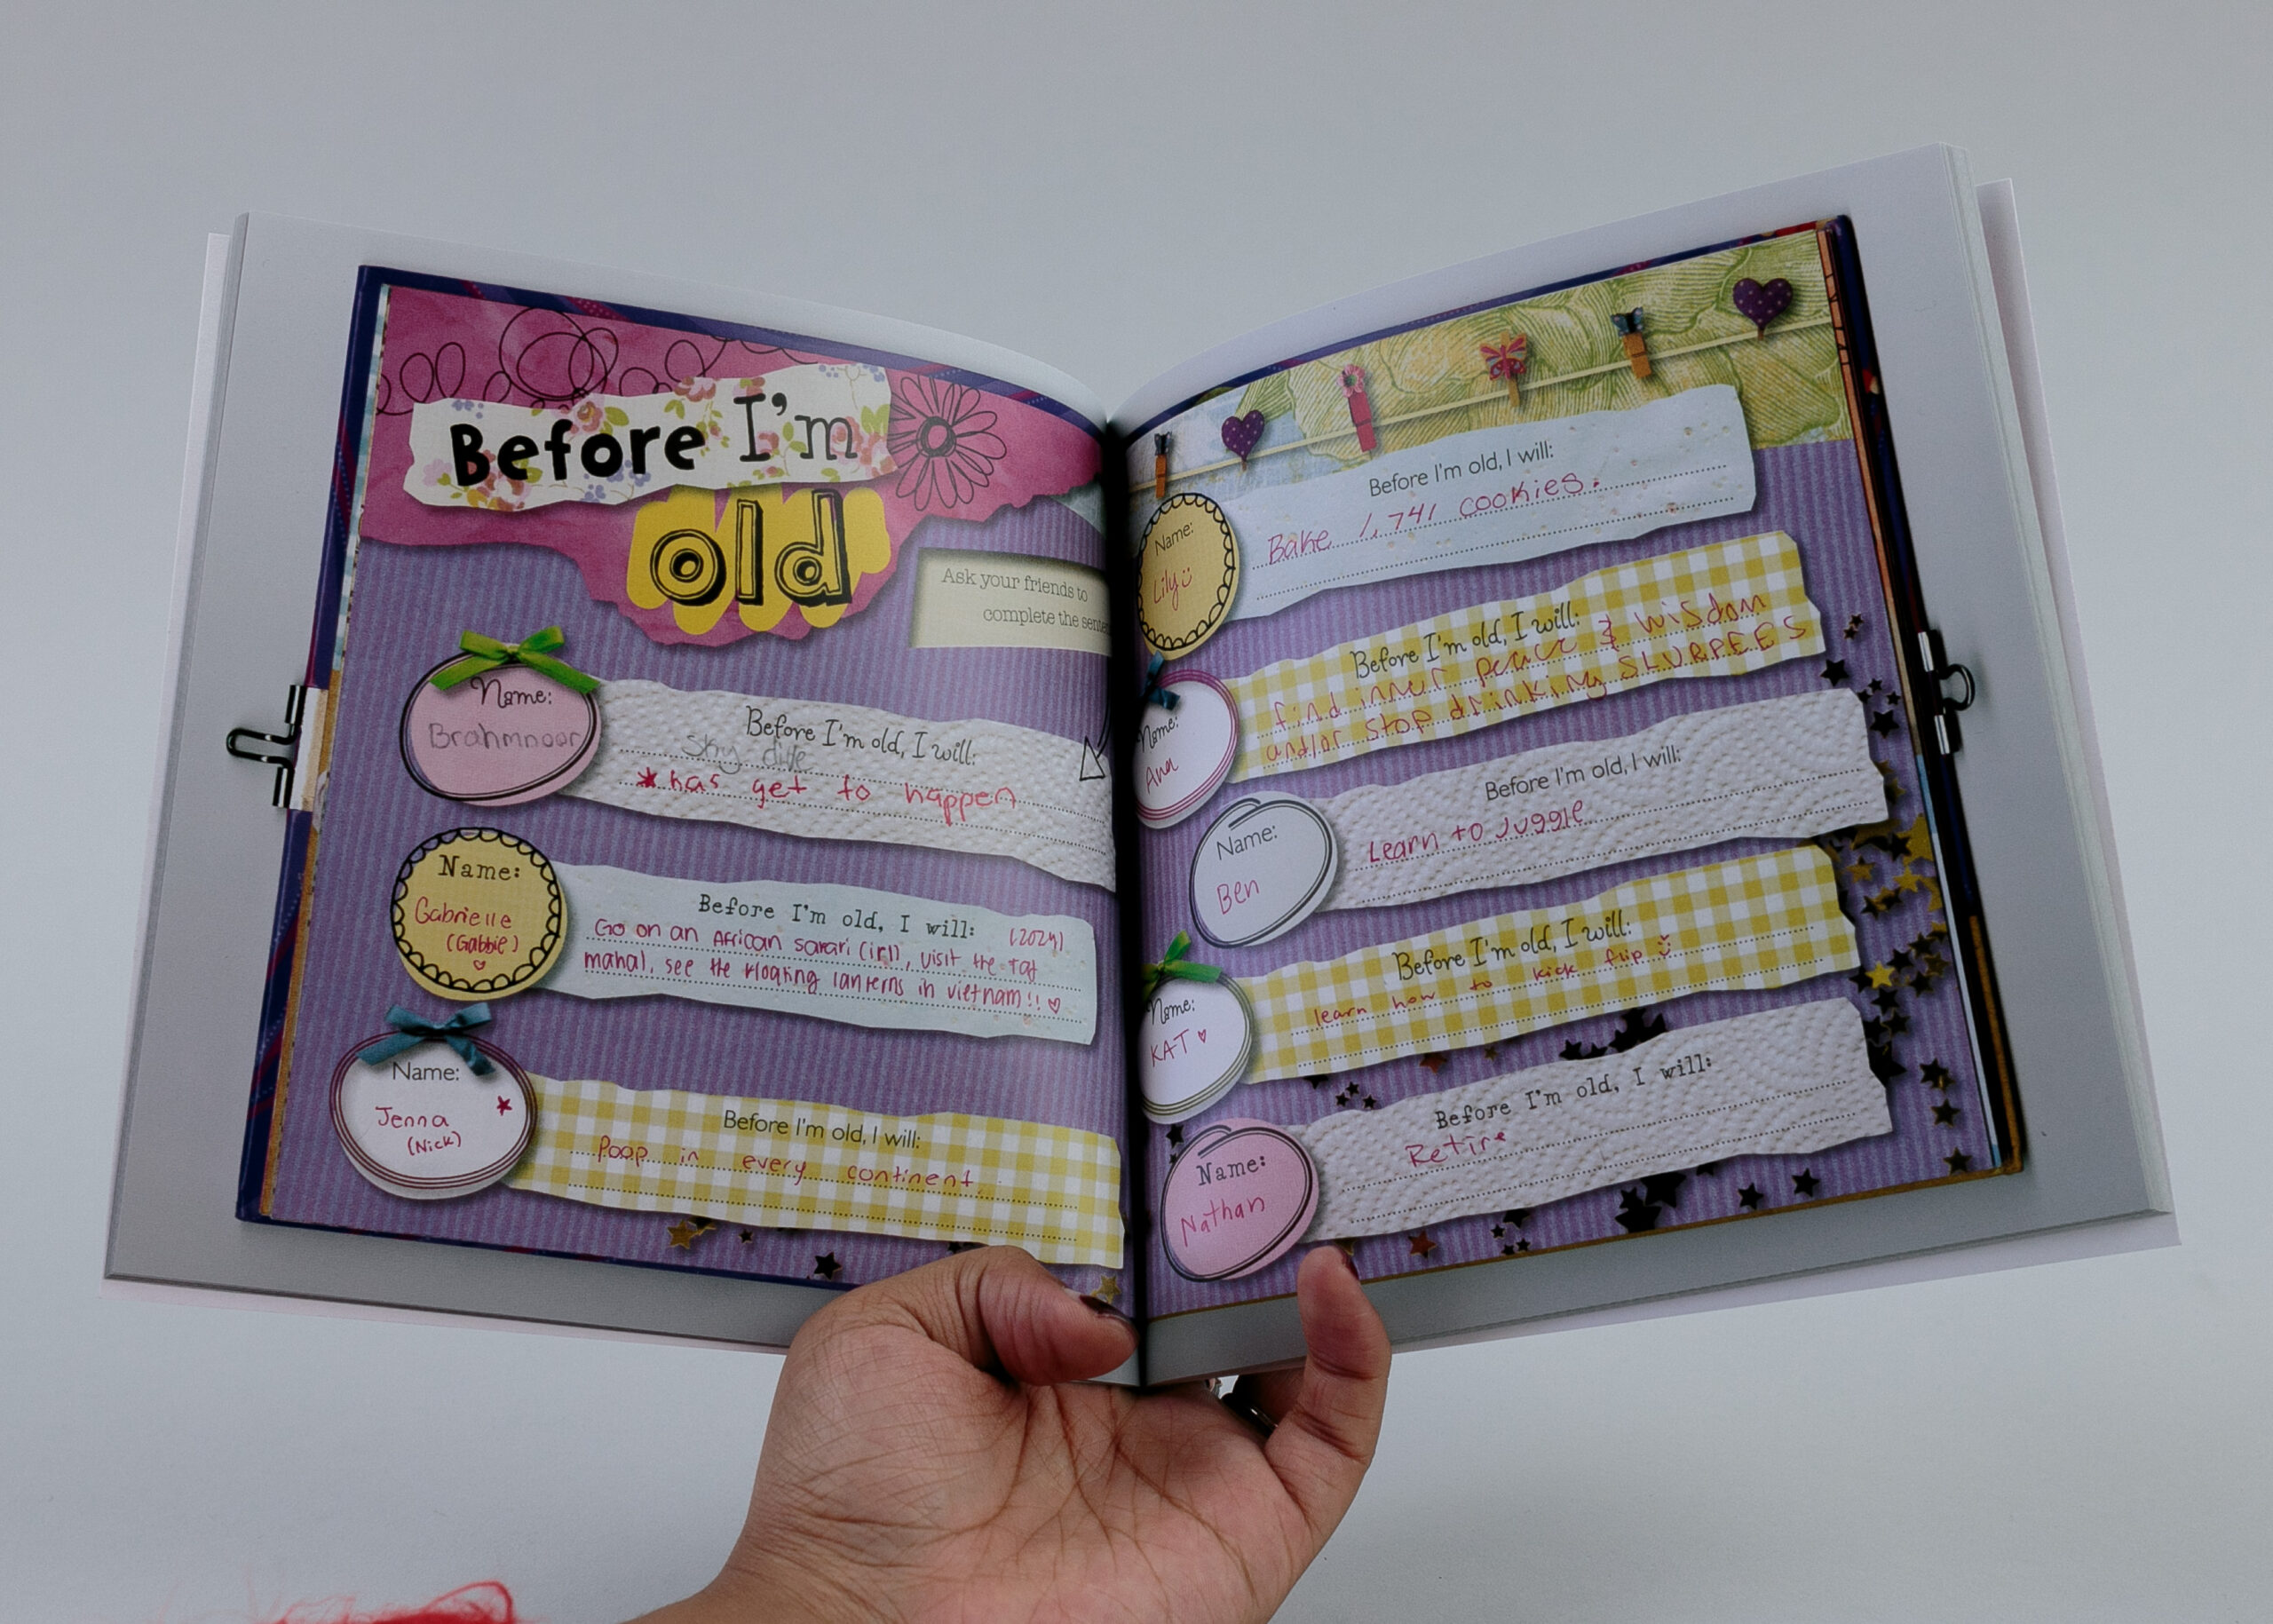 Before I'm
old
Ask your friends to
complete the
Name:
Brahmnoor
Before I'm old, I will:
sky dive
*has get to happen
Name:
Gabrielle
(Gabbie)
Before I'm old, I will:
Go on an African safari (irl), visit the Taj
mahal, see the floating lanterns in vietnam!! ♡
Name:
Jenna
(Nick)
Before I'm old, I will:
Poop in every continent
Before I'm old, I will:
Bake 1,741 cookies.
Name:
Lily
Before I'm old, I will:
find inner peace & wisdom
and/or stop drinking SLURPEES
Name:
Ana
Before I'm old, I will:
Learn to juggle
Name:
Ben
Before I'm old, I will:
learn how to kick flip
Name:
KAT ♡
Before I'm old, I will:
Retire
Name:
Nathan